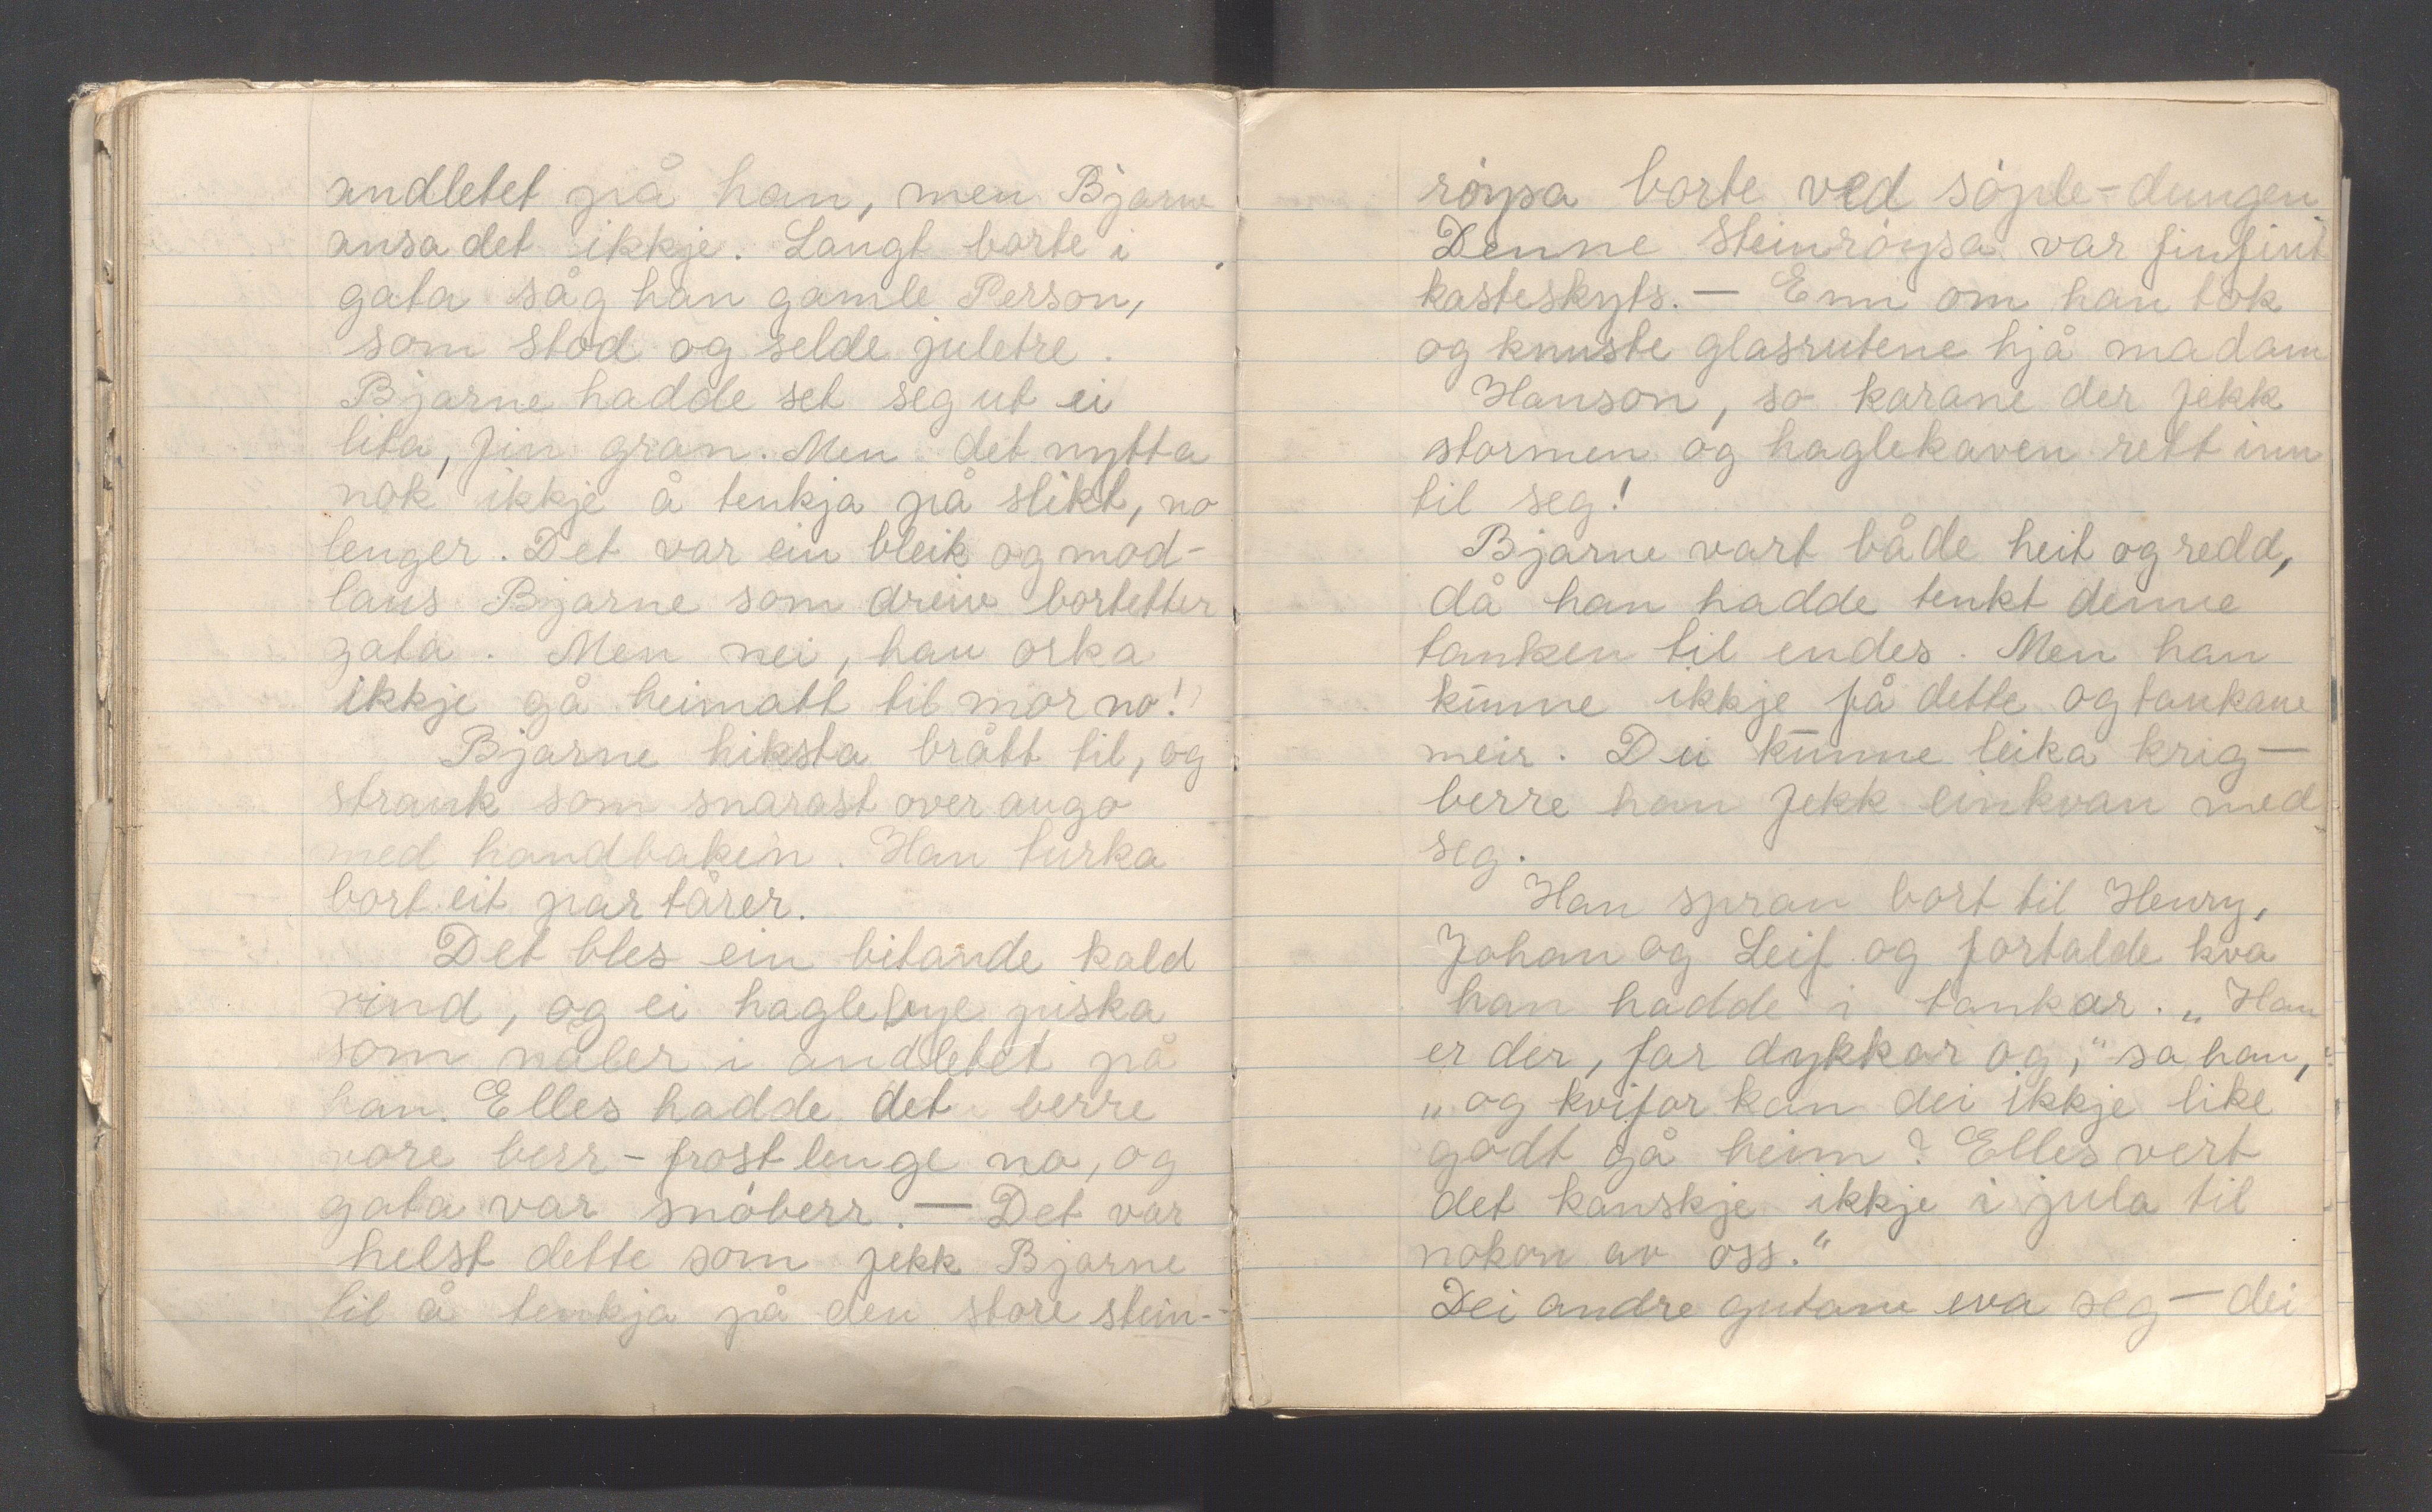 andletet på han, men Bjarne
ansa det ikkje. Langt borte i
gata såg han gamle Person,
som stod og selde juletre.
Bjarne hadde set seg ut ei
lita, fin gran. Men det nytta
nok ikkje å tenkja på slikt, no
lenger. Det var ein bleik og mod-
laus Bjarne som dreiv bortetter
gata. Men nei, han orka
ikkje gå heimatt til mor no!
Bjarne hiksta brått til, og
strauk som snarast over augo
med handbaken. Han turka
bort eit par tårer.
Det bles ein bitande kald
vind, og ei haglebye piska
som nåler i andletet på
han. Elles hadde det berre
vore berr-frost lenge no, og
gata var snöberr. — Det var
helst dette som fekk Bjarne
til å tenkja på den store stein-
röysa borte ved söple-dungen
Denne steinröysa var finfint
kasteskyts. — Enn om han tok
og knuste glasrutene hjå madam
Hanson, so karane der fekk
stormen og haglekaven rett inn
til seg!
Bjarne vart både heit og redd,
då han hadde tenkt denne
tanken til endes. Men han
kunne ikkje få dette og tankane
meir. Dei kunne leika krig —
berre han fekk einkvan med
seg.
Han spran bort til Henry,
Johan og Leif og fortalde kva
han hadde i tankar. „Han
er der, far dykkar og," sa han,
„og kvifor kan dei ikkje like
godt gå heim? Elles vert
det kanskje ikkje i jula til
nokon av oss."
Dei andre gutane eva seg — dei